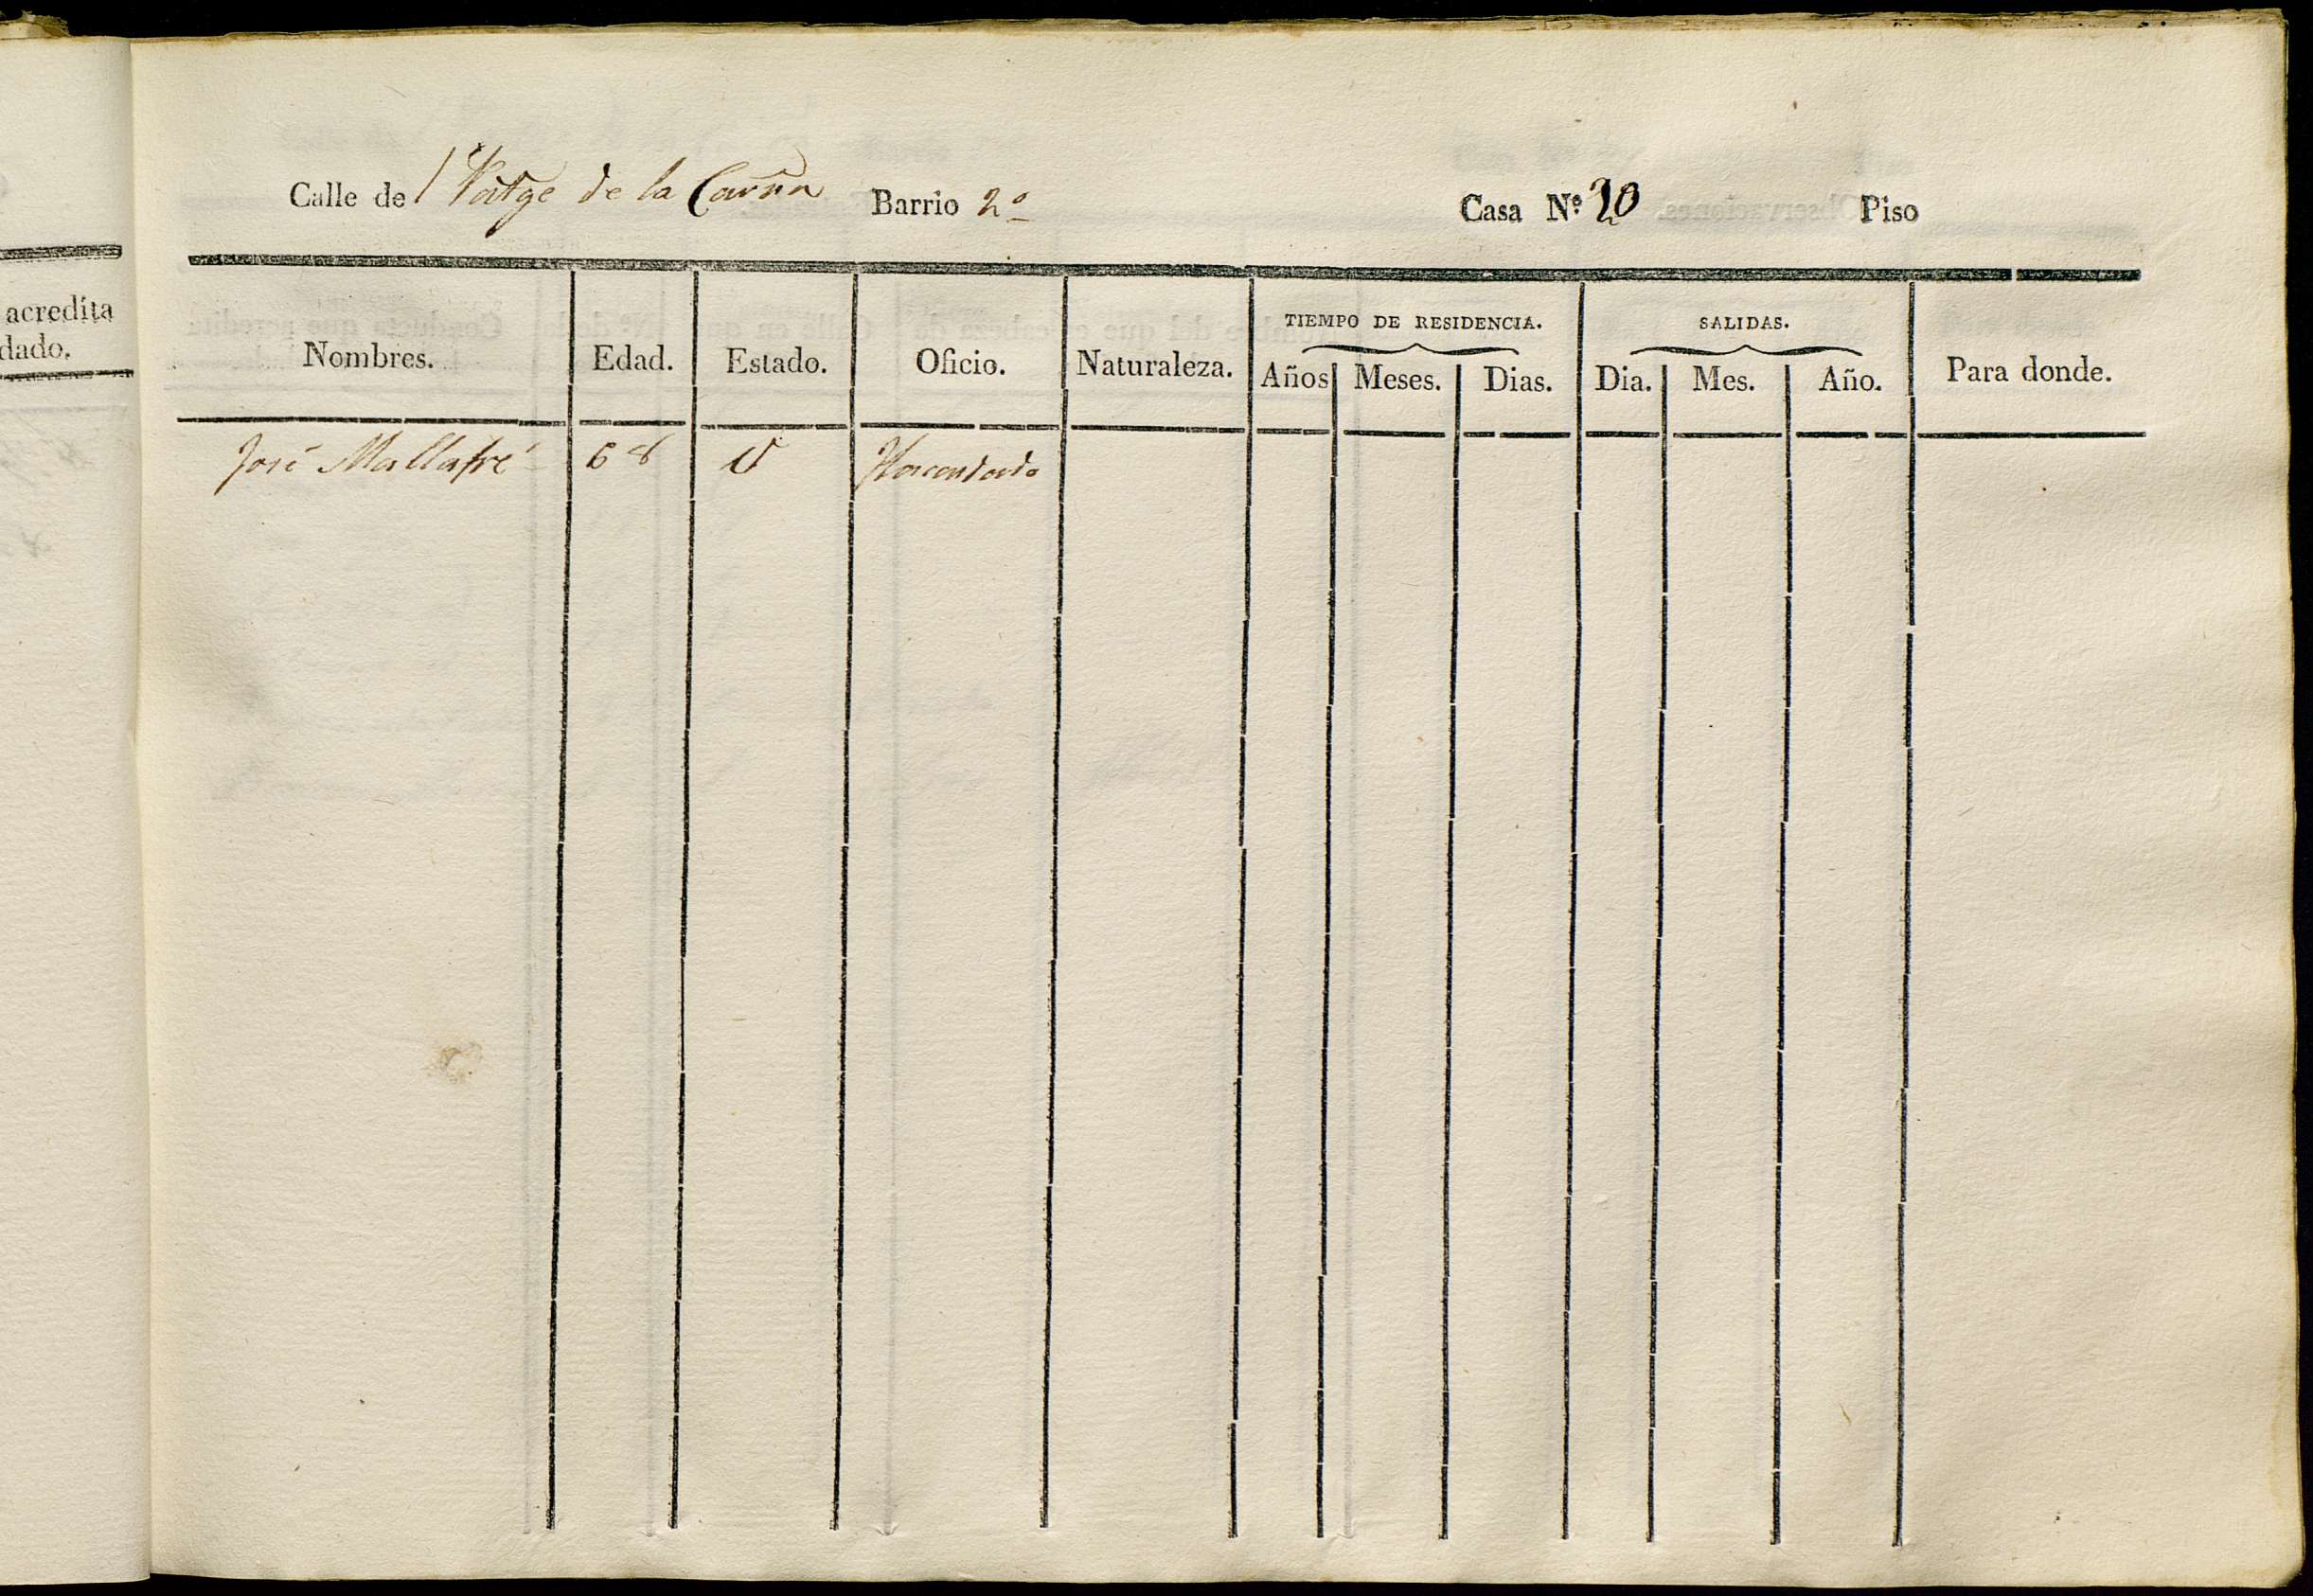 acredíta
dado.
Calle de l Patge de la Carña Barrio 2º Casa Nº 20 Piso
TIEMPO DE RESIDENCIA. SALIDAS.
Nombres. Edad. Estado. Oficio. Naturaleza. Años Meses. Dias. Dia. Mes. Año. Para donde.
José Mallafré 68 V Hacendado